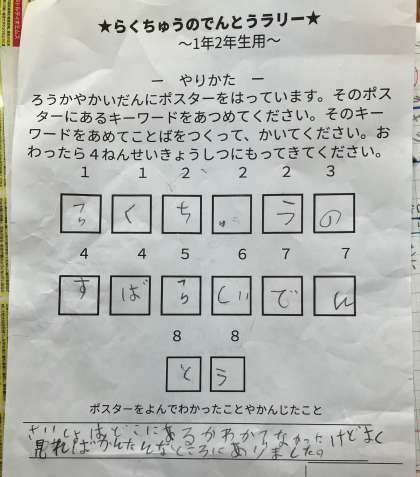 ★らくちゅうのでんとうラリー★
～1年2年生用～
ー やりかた ー
ろうかやかいだんにポスターをはっています。そのポス
ターにあるキーワードをあつめてください。そのキー
ワードをあめてことばをつくって、かいてください。お
わったら４ねんせいきょうしつにもってきてください。
1 1 2 2 2 3
ら く ち ゅ う の
4 4 5 6 7 7
す ば ら しい で ん
8 8
と う
ポスターをよんでわかったことやかんじたこと
さいしょはどこにあるかわからなかったけどよく
見ればかんたんなところにありました。